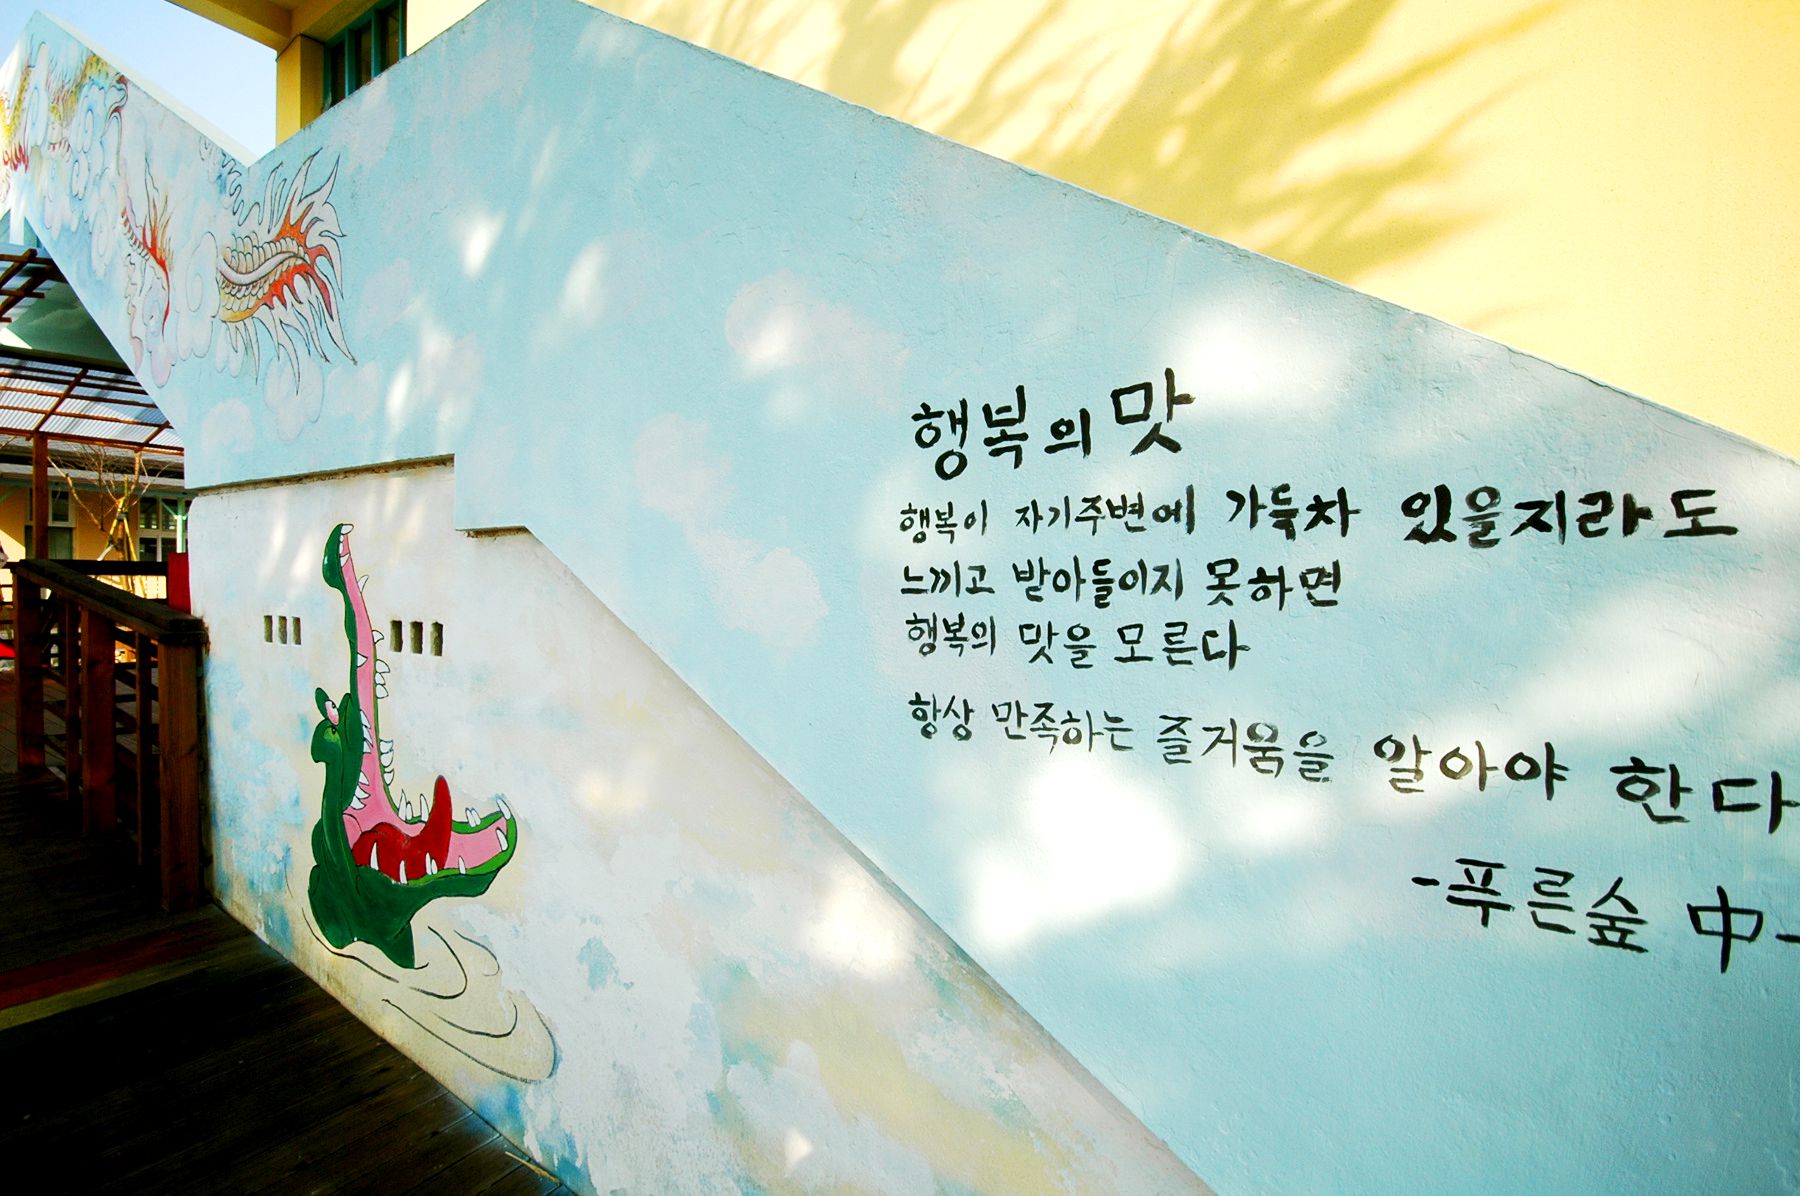 행복의 맛
행복이 자기주변에 가득차 있을지라도
느끼고 받아들이지 못하면
행복의 맛을 모른다
항상 만족하는 즐거움을 알아야 한다
-푸른숲 中-